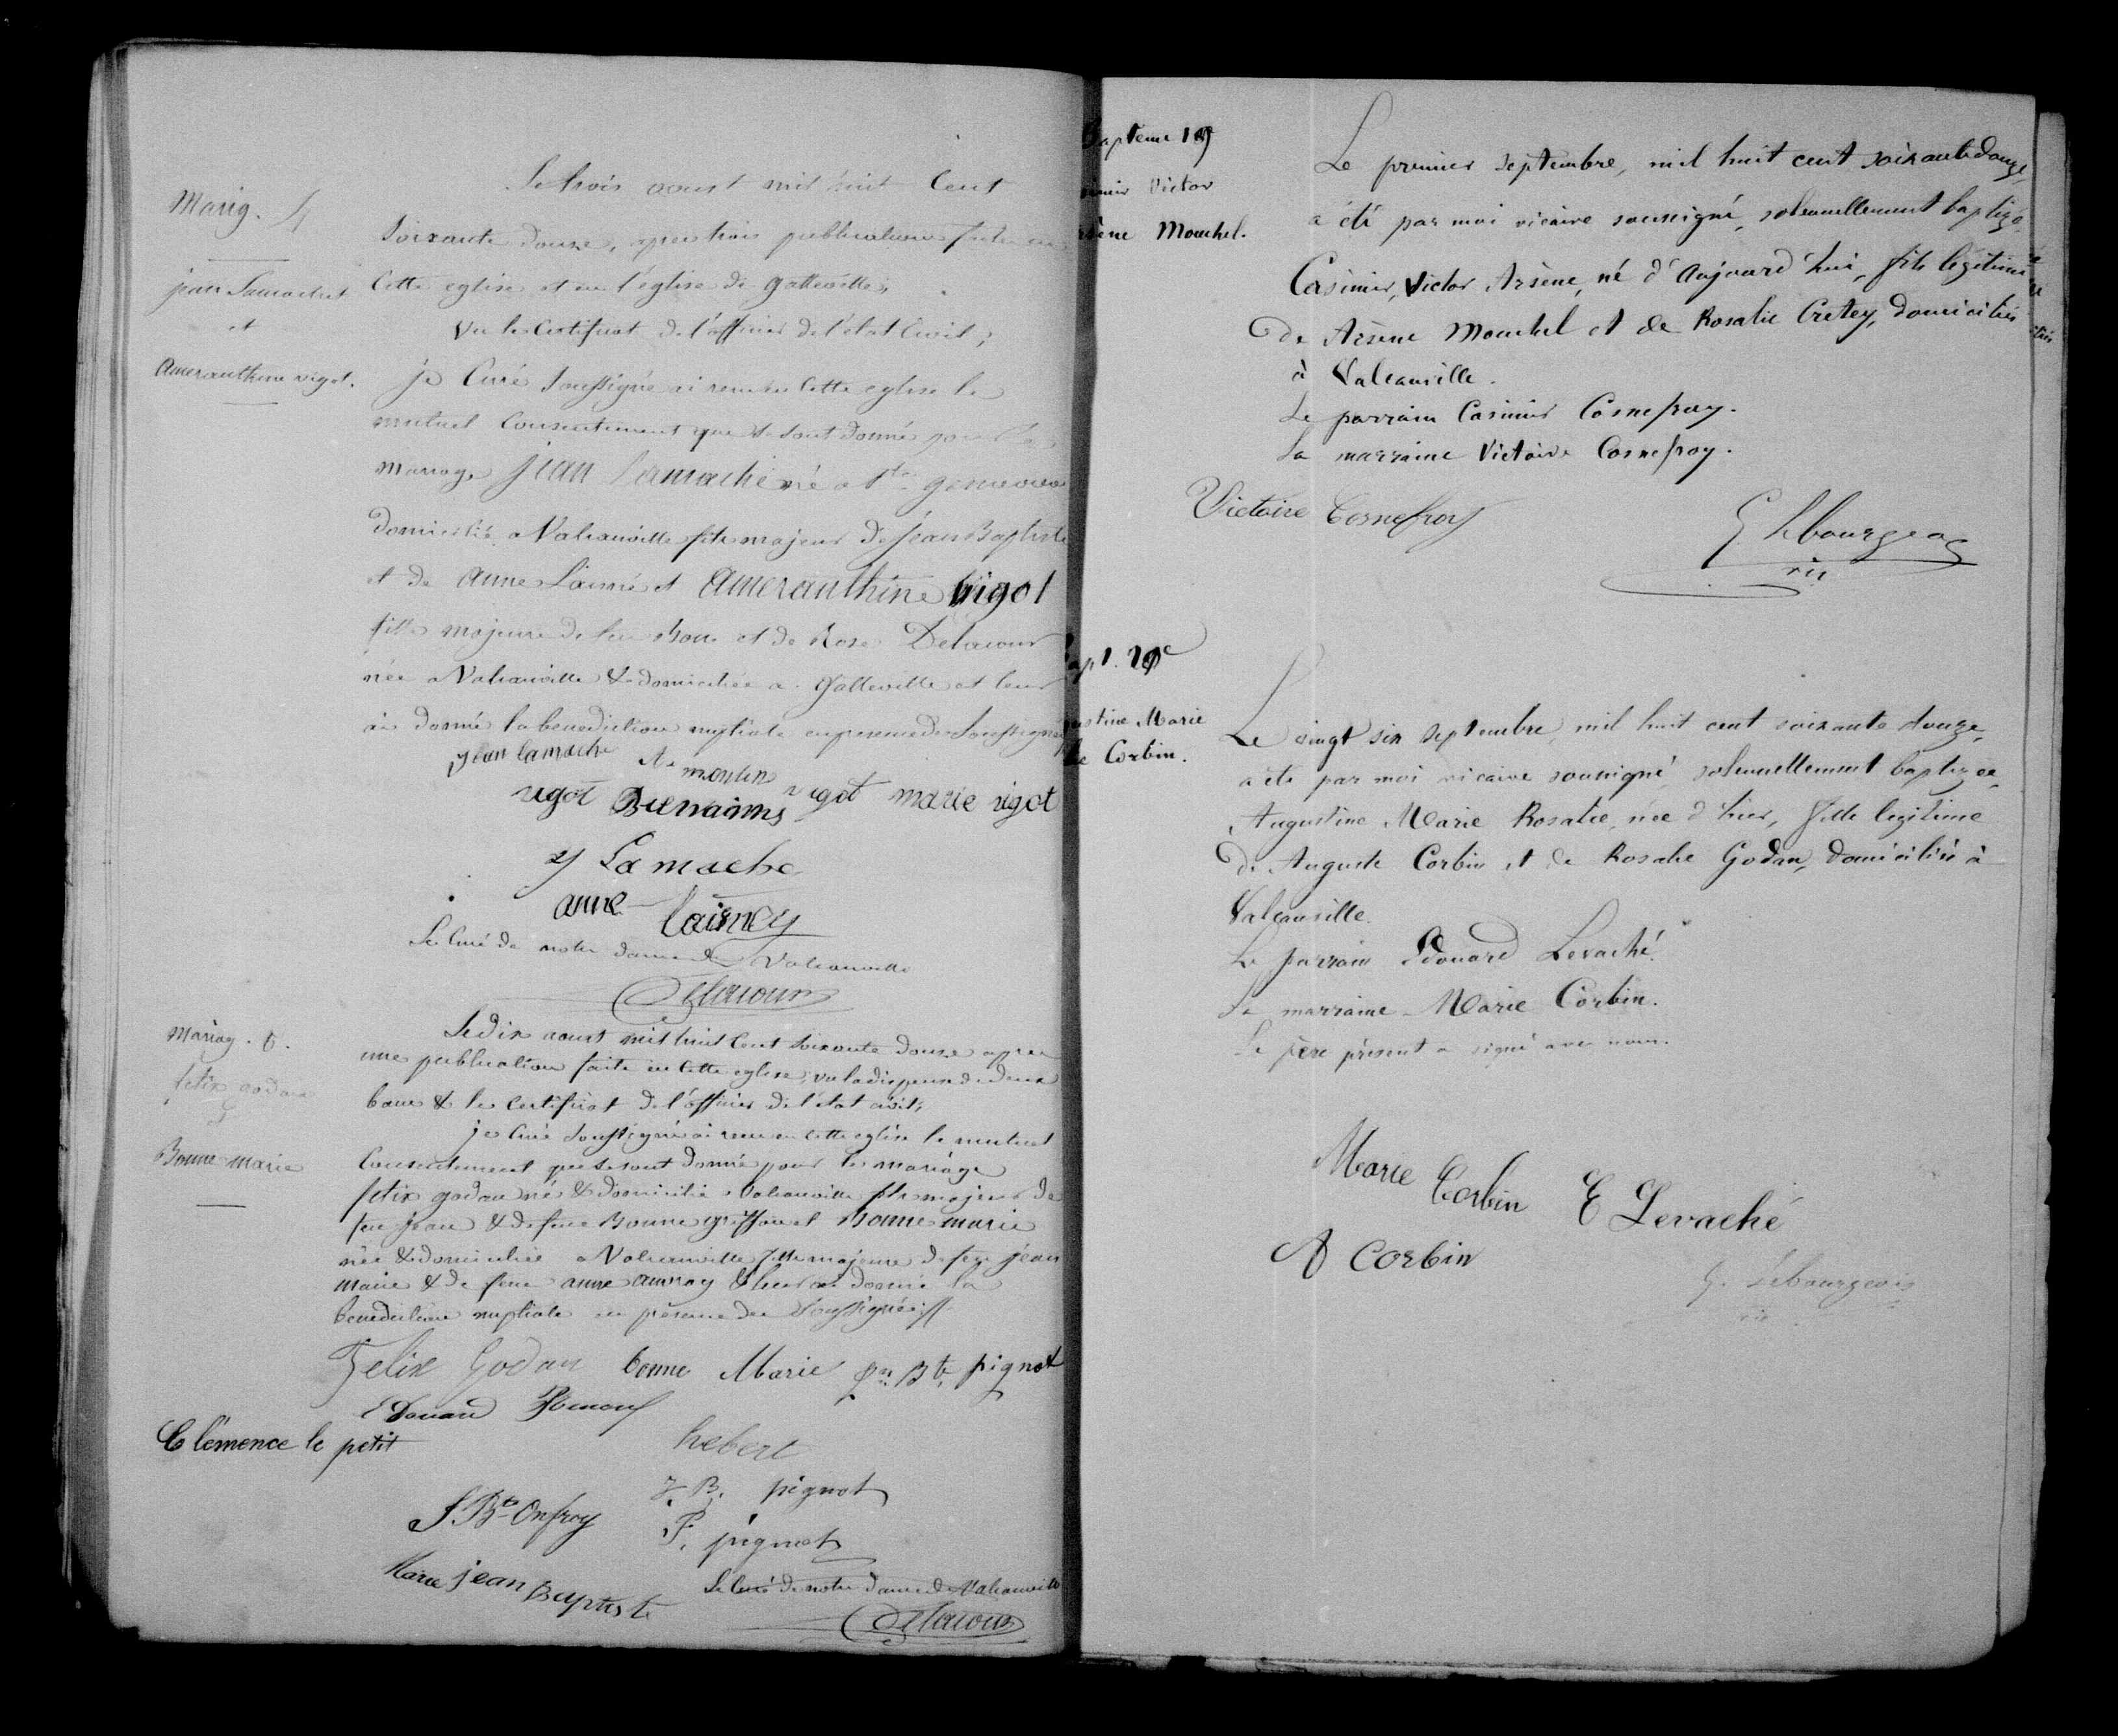 Mariag. 4
jean Lamache
et
Ameranthine vigot.
Le trois aoust mil huit Cent
soixante douze, apres trois publications faites en
Cette eglise et en l'église de gatteville;
Vu le Certificat de l'officier de l'état Civil;
je Curé Soussigné ai recu en Cette eglise le
mutuel Consentement que se sont donné pour le
mariage jean Lamache né a Ste genevieve
domicilié a Valcanville fils majeur de jean Baptiste
et de anne Laisné et Ameranthine vigot
fille majeure de feu Bon et de Rose Delacour
née a Valcanville & domiciliée a gatteville et leur
ai donné la benediction nuptiale en presence des Soussignés
jean lamache
vigot Bienaimé vigot marie vigot
J Lamache
anne laisney
Le Curé de notre dame de Valcanville
Delacour
Mariag. 5.
felix godan
&
Bonne marie
Le dix aoust mil huit Cent soixante douze apres
une publication faite en Cette eglise, vu la dispense de deux
bans & le Certificat de l'officier de l'état civil;
je Curé Soussigné ai recu en Cette eglise le mutuel
Consentement que se sont donné pour le mariage
felix godan né & domicilié a Valcanville fils majeur de
feu jean & de feue Bonne griffon et Bonne marie
née & domiciliée a Valcanville fille majeure de feu jean
marie & de feue anne aunay & leur ai donné la
benediction nuptiale en présence des Soussignés
Felix Godan bonne Marie Jn Bte pignot
Edouard
Clémence le petit hebert
J. B. pignot
J Bte Onfroy
F. pignot
Marie jean Baptiste
Le Curé de notre dame de Valcanville
Delacour
Baptème 19
Victor
Arsène Mouchel.
Le premier septembre, mil huit cent soixante douze,
a été par moi vicaire soussigné, solennellement baptizé
Casimir, Victor Arsène, né d'Aujourd'hui, fils légitime
de Arsène Mouchel et de Rosalie Cretey, domiciliés
à Valcanville.
Le parrain Casimir Cosnefroy.
La marraine Victoire Cosnefroy.
Victoire Cosnefroy
G. Lebourgeois
vic
Bapt. 20e
Augustine Marie
Corbin.
Le vingt six septembre, mil huit cent soixante douze,
a été par moi vicaire soussigné, solennellement baptizée,
Augustine Marie Rosalie, née d'hier, fille légitime
de Auguste Corbin et de Rosalie Godan, domiciliés à
Valcanville.
Le parrain Edouard Levaché.
La marraine Marie Corbin.
Le père présent a signé avec nous.
Marie Corbin E Levaché
A Corbin
G. Lebourgeois
vic